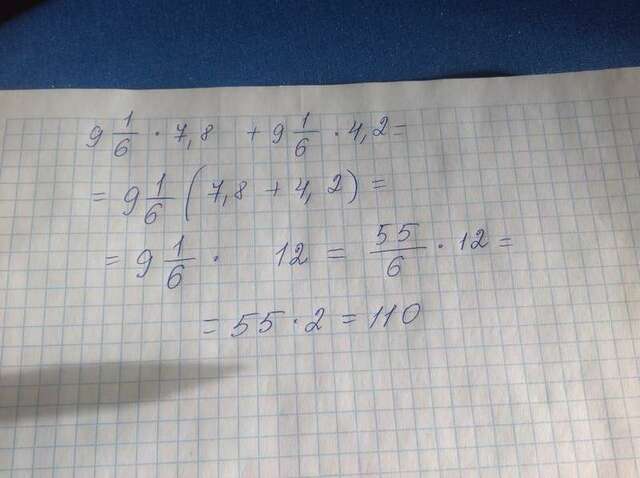 9 1/6 · 7,8 + 9 1/6 · 4,2 =
= 9 1/6 (7,8 + 4,2) =
= 9 1/6 · 12 = 55/6 · 12 =
= 55 · 2 = 110